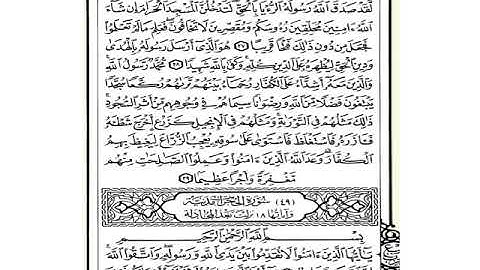 لَقَدْ صَدَقَ اللَّهُ رَسُولَهُ الرُّءْيَا بِالْحَقِّ لَتَدْخُلُنَّ الْمَسْجِدَ الْحَرَامَ إِن شَاءَ
اللَّهُ ءَامِنِينَ مُحَلِّقِينَ رُءُوسَكُمْ وَمُقَصِّرِينَ لَا تَخَافُونَ فَعَلِمَ مَا لَمْ تَعْلَمُوا
فَجَعَلَ مِن دُونِ ذَٰلِكَ فَتْحًا قَرِيبًا ٢٧ هُوَ الَّذِي أَرْسَلَ رَسُولَهُ بِالْهُدَىٰ
وَدِينِ الْحَقِّ لِيُظْهِرَهُ عَلَى الدِّينِ كُلِّهِ وَكَفَىٰ بِاللَّهِ شَهِيدًا ٢٨ مُحَمَّدٌ رَسُولُ اللَّهِ
وَالَّذِينَ مَعَهُ أَشِدَّاءُ عَلَى الْكُفَّارِ رُحَمَاءُ بَيْنَهُمْ تَرَاهُمْ رُكَّعًا سُجَّدًا
يَبْتَغُونَ فَضْلًا مِّنَ اللَّهِ وَرِضْوَانًا سِيمَاهُمْ فِي وُجُوهِهِم مِّنْ أَثَرِ السُّجُودِ
ذَٰلِكَ مَثَلُهُمْ فِي التَّوْرَاةِ وَمَثَلُهُمْ فِي الْإِنجِيلِ كَزَرْعٍ أَخْرَجَ شَطْأَهُ
فَآزَرَهُ فَاسْتَغْلَظَ فَاسْتَوَىٰ عَلَىٰ سُوقِهِ يُعْجِبُ الزُّرَّاعَ لِيَغِيظَ بِهِمُ
الْكُفَّارَ وَعَدَ اللَّهُ الَّذِينَ ءَامَنُوا وَعَمِلُوا الصَّالِحَاتِ مِنْهُم
مَّغْفِرَةً وَأَجْرًا عَظِيمًا ٢٩
(٤٩) سُورَةُ الْحُجُرَاتِ مَدَنِيَّة
وَآيَاتُهَا ١٨ نَزَلَتْ بَعْدَ الْمُجَادِلَةِ
بِسْمِ اللَّهِ الرَّحْمَٰنِ الرَّحِيمِ
يَا أَيُّهَا الَّذِينَ ءَامَنُوا لَا تُقَدِّمُوا بَيْنَ يَدَيِ اللَّهِ وَرَسُولِهِ وَاتَّقُوا اللَّهَ